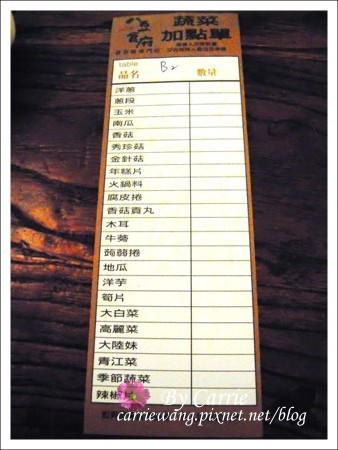 蔬菜
加點單
table
B2
品名 數量
洋蔥
蔥段
玉米
南瓜
香菇
秀珍菇
金針菇
年糕片
火鍋料
腐皮捲
香菇貢丸
木耳
牛蒡
蒟蒻捲
地瓜
洋芋
筍片
大白菜
高麗菜
大陸妹
青江菜
季節蔬菜
辣椒
By Carrie
carriewang.pixnet.net/blog